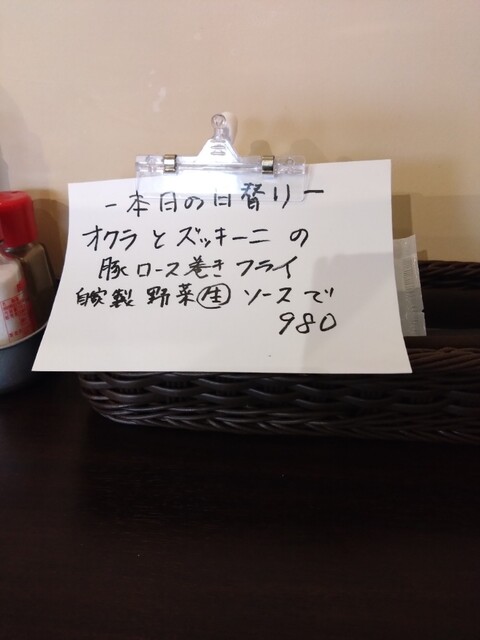 ー本日の日替りー
オクラとズッキーニの
豚ロース巻きフライ
自家製 野菜 生 ソースで
980